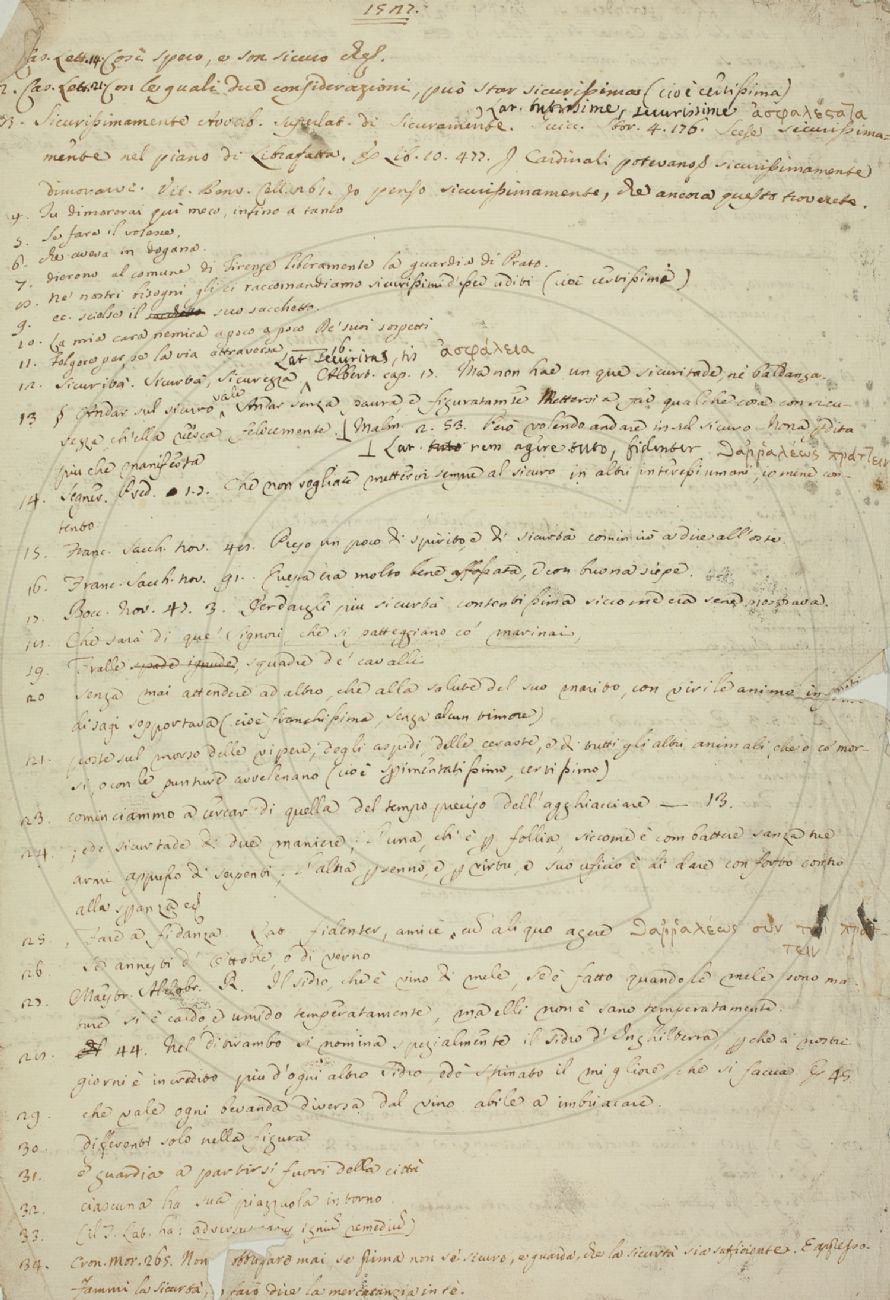 1587.
Cas. Lett. 14. Così spero, e son sicuro che
2. Cas. Lett. 21. Con le quali due considerazioni, può star sicurissima (cioè certissima)
3. Sicurissimamente Superlat. di Sicuramente. Lat. tutissime, securissime ἀσφαλέστατα Stor. 4. 176. Scese sicurissima-
mente nel piano di Librafatta. E Lib. 10. 477. I Cardinali potevano sicurissimamente
dimorarvi. Vit. Benv. Cell. Io penso sicurissimamente, che ancora questo troverete.
4. Tu dimorerai qui meco, infino a tanto
5. Se fare il volesse,
6. che aveva in dogana.
7. dierono al comune di Firenze liberamente la guardia di Prato.
8. Ne' nostri bisogni gli ci raccomandiamo sicurissimi d'esser uditi (cioè certissimi)
9. ec. sciolse il suo sacchetto.
10. La mia cara nemica a poco a poco De' suoi sospetti
11. Folgore par per la via attraversa
12. Sicurità. Sicurtà, Sicurezza Lat. Securitas, tis ἀσφάλεια Albert. cap. 16. Ma non hae un que sicuritade, nè baldanza.
13 § Andar sul sicuro vale Andar senza paura e figuratamente Mettersi a far qualche cosa con sicu-
rezza ch'ella riesca felicemente Malm. 2. 53. Però volendo andare in sul sicuro Non gli dita
più che manifesta Lat. rem agere tuto, fidenter Θαρραλέως πράττειν
14. Segner. Pred. 1. 7. Che non vogliate mettervi sempre al sicuro in altri interessi umani, come ne con-
tento
15. Franc. Sacch. nov. 48. Preso un poco di spirito, e di sicurtà cominciò a dire all'oste
16. Franc. Sacch. nov. 91. Questa era molto bene affossata, e con buona siepe.
17. Bocc. Nov. 47. 3. Per dargli più sicurtà contentissima siccome era se ne mostrava.
18. Che sarà di que' signori, che si patteggiano co' marinai,
19. Tralle spade ignude squadre de' cavalli
20 senza mai attendere ad altro, che alla salute del suo marito, con virile animo infiniti
disagi sopportava (cioè franchissima, senza alcun timore)
21. poste sul morso delle vipere, degli aspidi, delle ceraste, e di tutti gli altri animali, che o co' mor-
si, o con le punture avvelenano (cioè sperimentatissimo, certissimo)
23. cominciammo a cercar di quella del tempo preciso dell'agghiacciare — 13.
24. ; ed è sicurtade di due maniere; l'una, ch'è per follia, siccome è combattere sanza tue
arme appresso di serpenti; l'altra per senno, e per virtù, e suo uficio è di dare conforto contro
alla speranza
25. Fare a fidanza Lat. fidenter, amice cum aliquo agere Θαρραλέως σύν τινι πράτ-
τειν
26. Se annesti d'Ottobre, o di verno
27. Maestr. Aldobr. R. Il sidro, che è vino di mele, s'ed è fatto quando le mele sono ma-
ture si è caldo e umido temperatamente, ma elli non è sano temperatamente.
28. 44. Nel ditirambo si nomina spezialmente il sidro d'Inghilterra, perchè a' nostri
giorni è in credito più d'ogni altro sidro, ed è stimato il migliore, che si faccia E 45
29. che vale ogni bevanda diversa dal vino abile a imbriacare.
30 differenti solo nella figura
31. e guardia a partirsi fuori della città
32. ciascuna ha sua piazzuola intorno
33. (il T. Lat. ha: adversus remedium)
34. Cron. Mor. 265. Non obbligare mai, se prima non se' sicuro, e guarda, che la sicurtà sia sufficiente. E appresso.
Fammi la sicurtà, farò dire la mercatanzia in te.